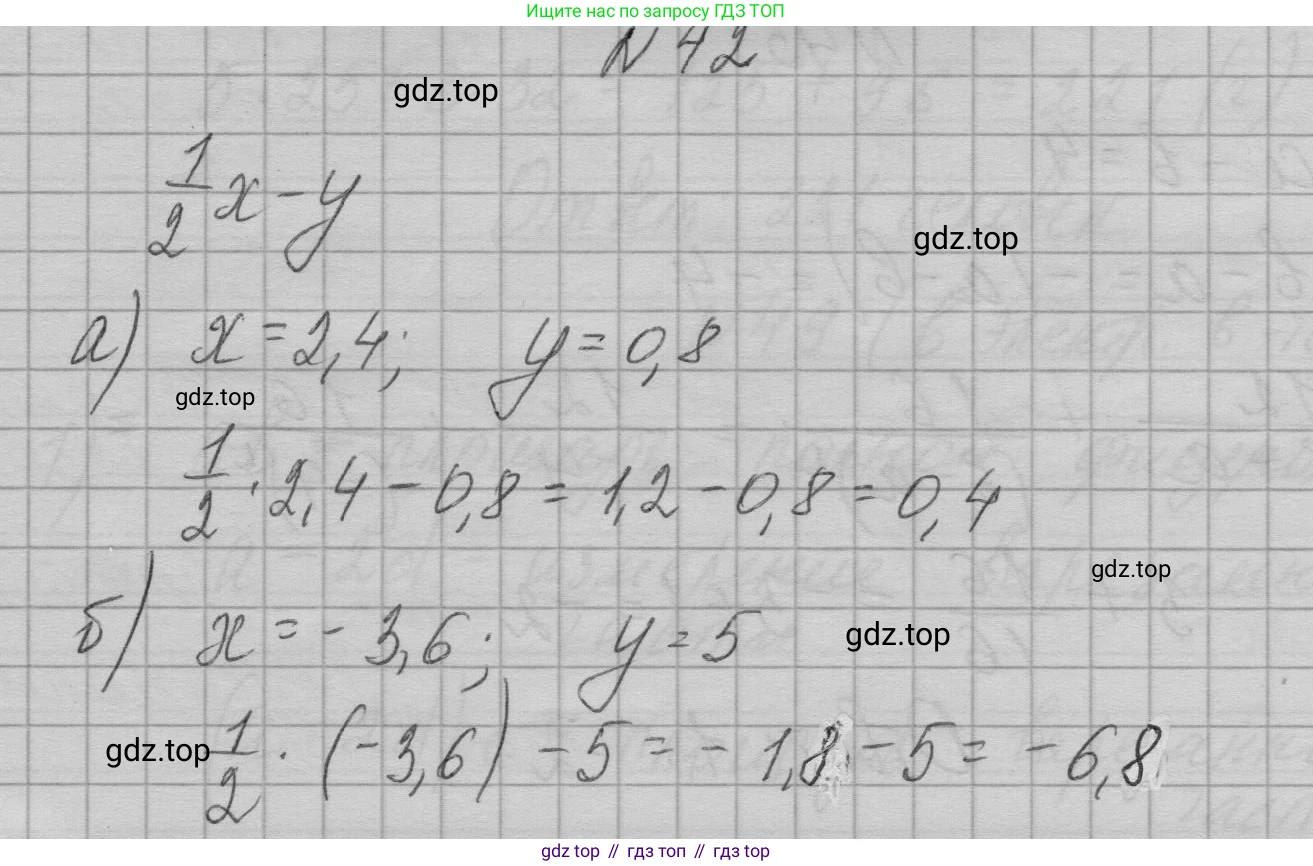 Ищите нас по запросу ГДЗ ТОП
N 42
gdz.top
1/2 x - y
gdz.top
а) x = 2,4; y = 0,8
gdz.top
1/2 · 2,4 - 0,8 = 1,2 - 0,8 = 0,4
gdz.top
б) x = - 3,6; y = 5
gdz.top
gdz.top
1/2 · (-3,6) - 5 = - 1,8 - 5 = - 6,8
gdz top // гдз топ // гдз top